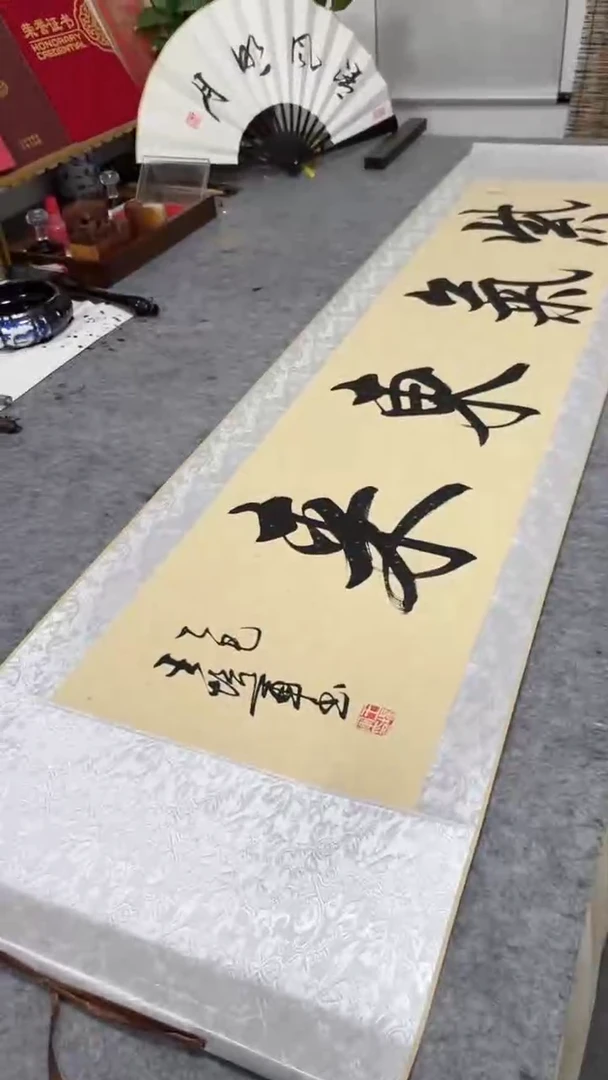 荣誉证书
HONORARY
CREDENTIAL
清风明月
紫氣東來
乙巳